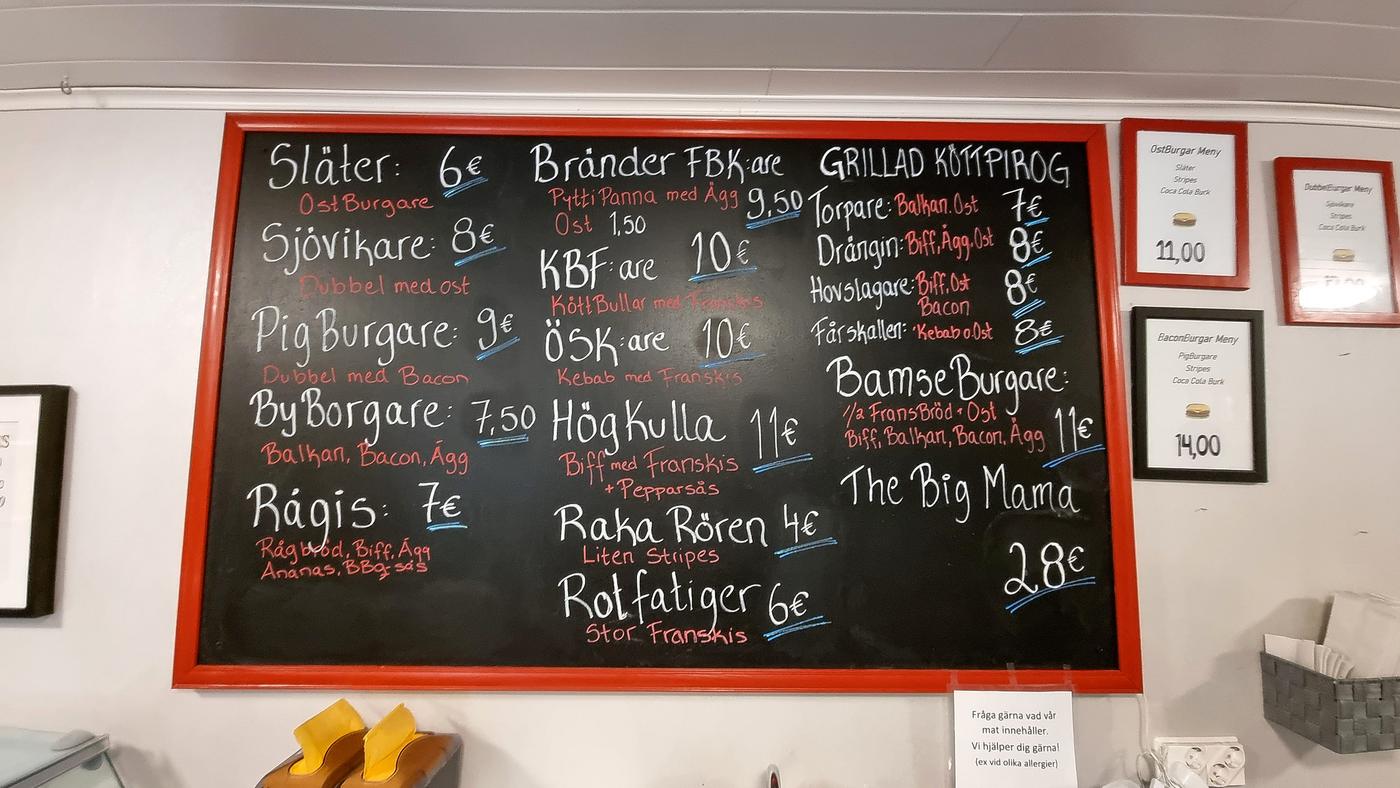 Släter: 6€
OstBurgare
Sjövikare: 8€
Dubbel med ost
PigBurgare: 9€
Dubbel med Bacon
ByBorgare: 7,50
Balkan, Bacon, Ägg
Rågis: 7€
Rågbröd, Biff, Ägg
Ananas, BBq-sås
Bränder FBK:are
PyttiPanna med Ägg 9,50
Ost 1,50
KBF:are 10€
KöttBullar med Franskis
ÖSK:are 10€
Kebab med Franskis
HögKulla 11€
Biff med Franskis
+ Pepparsås
Raka Rören 4€
Liten Stripes
Rotfatiger 6€
Stor Franskis
GRILLAD KÖTTPIROG
Torpare: Balkan. Ost 7€
Drängin: Biff, Ägg, Ost 8€
Hovslagare: Biff, Ost 8€
Bacon
Fårskallen: Kebab o Ost 8€
BamseBurgare:
1/2 FransBröd + Ost
Biff, Balkan, Bacon, Ägg 11€
The Big Mama
28€
OstBurgar Meny
Släter
Stripes
Coca Cola Burk
11,00
DubbelBurgar Meny
Sjövikare
Stripes
Coca Cola Burk
BaconBurgar Meny
PigBurgare
Stripes
Coca Cola Burk
14,00
Fråga gärna vad vår
mat innehåller.
Vi hjälper dig gärna!
(ex vid olika allergier)